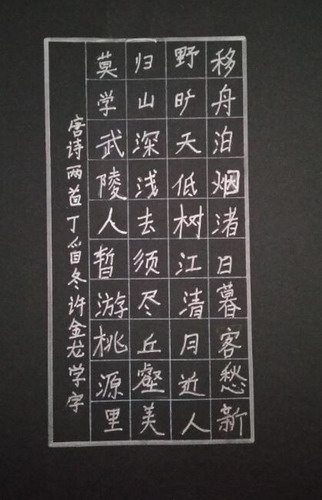 移舟泊烟渚日暮客愁新
野旷天低树江清月近人
归山深浅去须尽丘壑美
莫学武陵人暂游桃源里
唐诗两首丁酉冬许金龙学字